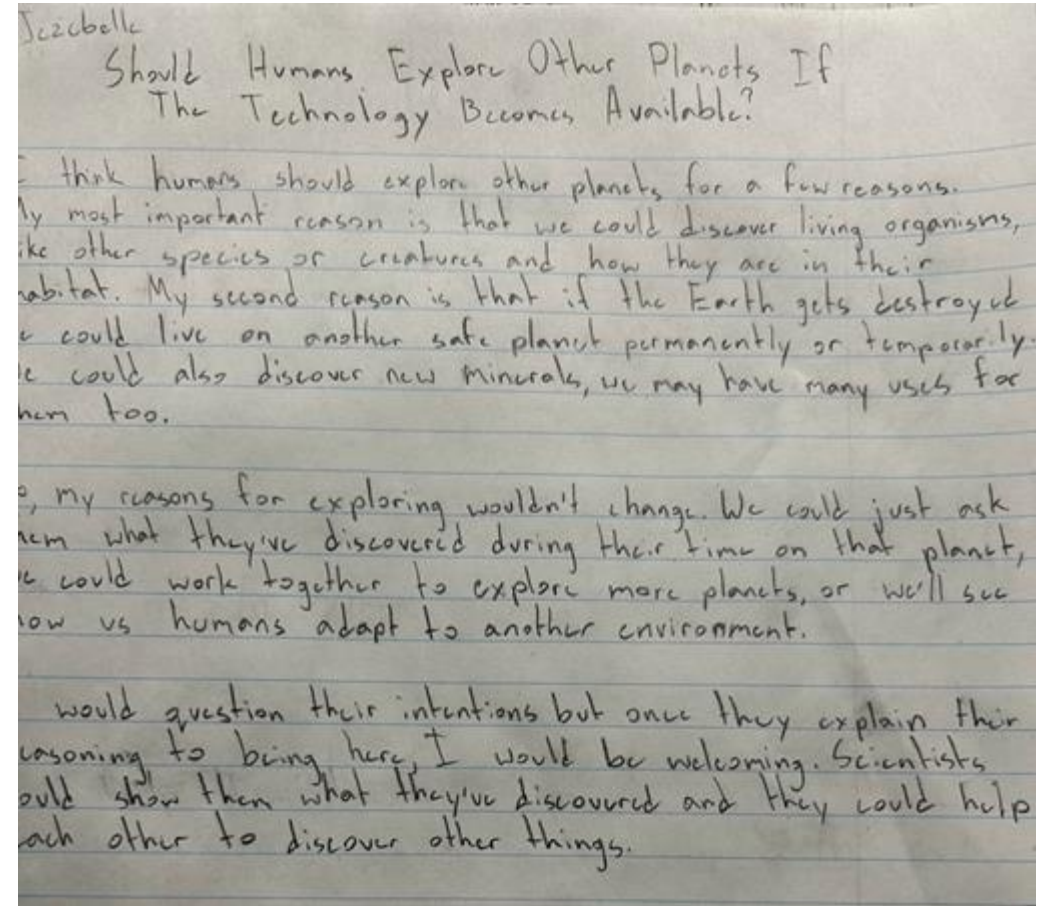 Jezebelle
Should Humans Explore Other Planets If
The Technology Becomes Available?
I think humans should explore other planets for a few reasons.
My most important reason is that we could discover living organisms,
like other species or creatures and how they are in their
habitat. My second reason is that if the Earth gets destroyed
we could live on another safe planet permanently or temporarily.
We could also discover new minerals, we may have many uses for
them too.
my reasons for exploring wouldn't change. We could just ask
them what they've discovered during their time on that planet,
we could work together to explore more planets, or we'll see
how us humans adapt to another environment.
would question their intentions but once they explain their
reasoning to being here, I would be welcoming. Scientists
could show them what they've discovered and they could help
each other to discover other things.